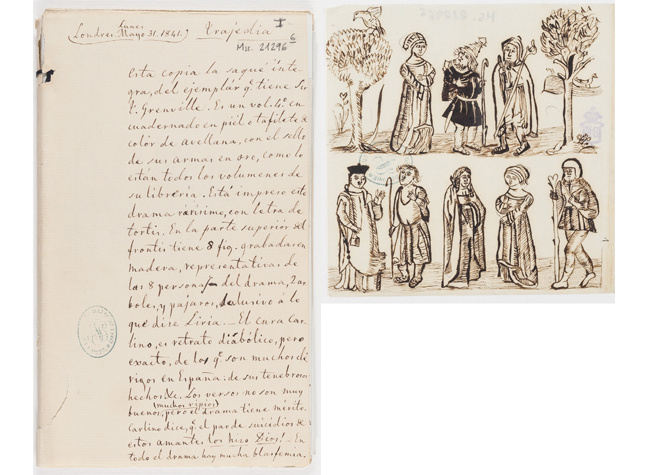 lunes
Londres Mayo 31. 1841.) trajedia I
Mss. 21296⁶
esta copia la saqué ínte-
gra, del ejemplár qe. tiene Sir
T. Grenville. Es un vol. 4º. en
cuadernado en piel o tafilete de
colór de avellana, con el sello
de sus armas en oro, como lo
están todos los volumenes de
su librería. Está impreso este
drama rarísimo, con letra de
tortis. En la parte superiór del
frontis tiene 8 fig. grabadas en
madera, representativas de
las 8 personas del drama, 2 ar-
boles, y pájaros, alusivo á lo
que dice Liria. — El cura Car-
lino, es retrato diabólico, pero
exacto, de los qe. son muchos clé-
rigos en España: de sus tenebrosos
hechos &c. Los versos no son muy
(muchos ripios)
buenos, pero el drama tiene mérito.
Carlino dice, qe. el par de suicidios de
estos amantes los hizo Dios! — En
todo el drama hay mucha blasfemia.